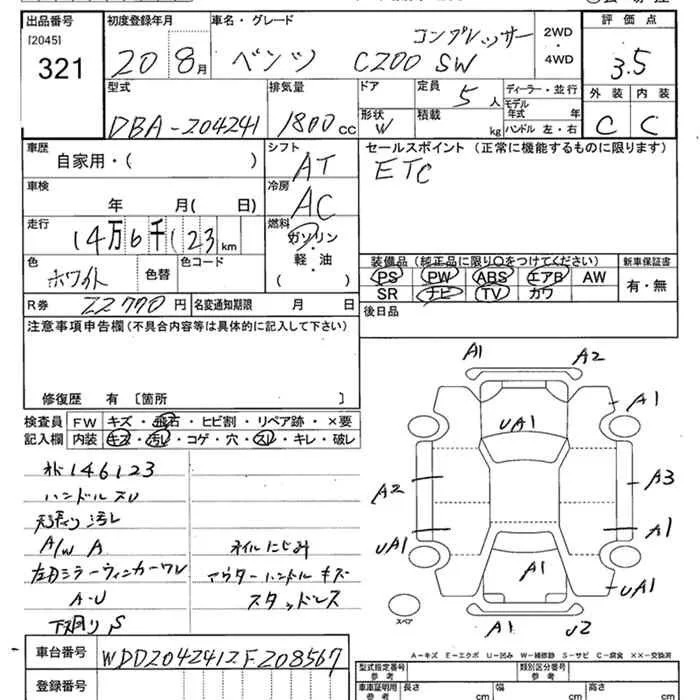 出品番号 初度登録年月 車名・グレード 評価点
[2045]
321
20 8月 ベンツ C200 コンプレッサー SW 2WD・4WD 3.5
型式 排気量 ドア 定員 5人 ディーラー・並行 外装 内装
DBA-204241 1800cc 形状 W 積載 kg モデル年式 年 ハンドル 左・右 C C
車歴 シフト セールスポイント(正常に機能するものに限ります)
自家用・( ) AT ETC
車検 冷房
年 月( 日) AC
走行 燃料
14万6千123km ガソリン・軽油( )
色 色替 色コード
ホワイト
装備品(純正品に限り○をつけてください) 新車保証書
PS PW ABS エアB AW 有・無
SR ナビ TV カワ
R券 22770円 名変通知期限 月 日 後日品
注意事項申告欄(不具合内容等は具体的に記入して下さい)
修復歴 有〔箇所 〕
検査員記入欄 FW キズ・飛石・ヒビ割・リペア跡・×要
内装 キズ・汚レ・コゲ・穴・スレ・キレ・破レ
A1 A2
A1
UA1
A2 A3
UA1 A1
A1 UA1
A1 U2
スペア
オド146123
ハンドルスリ
天張り汚レ
A/W A ネイルにじみ
左ドミラーウィンカーワレ アウターハンドルキズ
A-U スタッドレス
下廻りS
A-キズ E-エクボ U-凹み W-補修跡 S-サビ C-腐食 ××-交換済
車台番号 WDD2042412F208567
登録番号
型式指定番号 参考 類別区分番号 参考
車庫証明用 参考 長さ cm 幅 cm 高さ cm